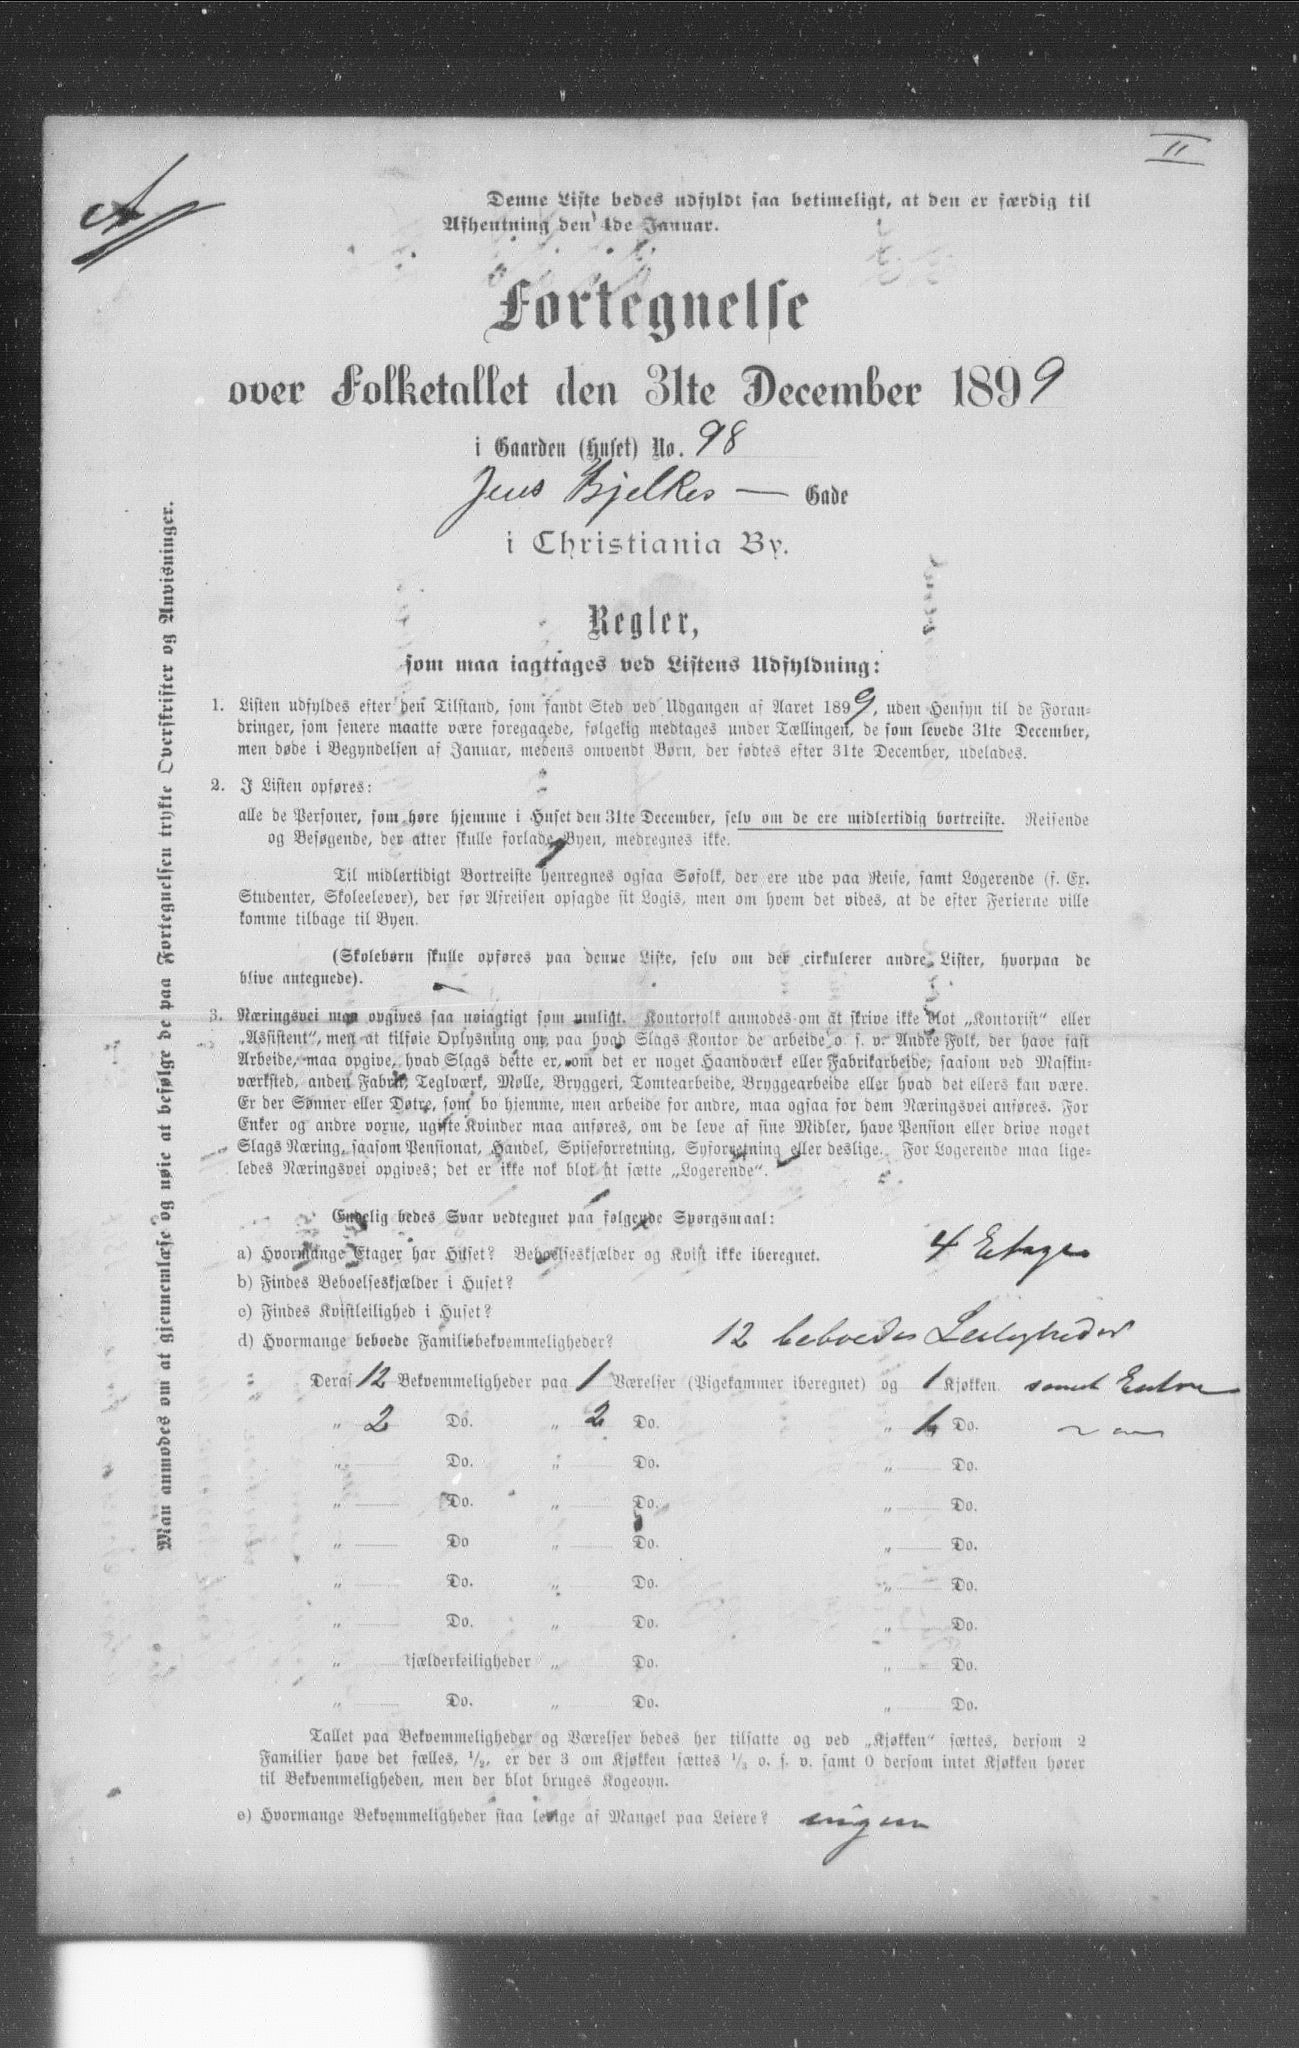 II
A
Denne Liste bedes udfyldt saa betimeligt, at den er færdig til
Afhentning den 4de Januar.
Fortegnelse
over Folketallet den 31te December 1899
i Gaarden (Huset) No. 98
Jens Bjelkes — Gade
i Christiania By.
Regler,
som maa iagttages ved Listens Udfyldning:
1. Listen udfyldes efter den Tilstand, som fandt Sted ved Udgangen af Aaret 1899, uden Hensyn til de Foran-
dringer, som senere maatte være foregagede, følgelig medtages under Tællingen, de som levede 31te December,
men døde i Begyndelsen af Januar, medens omvendt Børn, der fødtes efter 31te December, udelades.
2. I Listen opføres:
alle de Personer, som høre hjemme i Huset den 31te December, selv om de ere midlertidig bortreiste. Reisende
og Besøgende, der atter skulle forlade Byen, medregnes ikke.
Til midlertidigt Bortreiste henregnes ogsaa Søfolk, der ere ude paa Reise, samt Logerende (f. Ex.
Studenter, Skoleelever), der før Afreisen opsagde sit Logis, men om hvem det vides, at de efter Ferierne ville
komme tilbage til Byen.
(Skolebørn skulle opføres paa denne Liste, selv om der cirkulerer andre Lister, hvorpaa de
blive antegnede).
3. Næringsvei maa opgives saa nøiagtigt som muligt. Kontorfolk anmodes om at skrive ikke blot „Kontorist“ eller
„Assistent“, men at tilføie Oplysning om, paa hvad Slags Kontor de arbeide o. s. v. Andre Folk, der have fast
Arbeide, maa opgive, hvad Slags dette er, om det er noget Haandværk eller Fabrikarbeide, saasom ved Maskin-
værksted, anden Fabrik, Teglværk, Mølle, Bryggeri, Tomtearbeide, Bryggearbeide eller hvad det ellers kan være.
Er der Sønner eller Døtre, som bo hjemme, men arbeide for andre, maa ogsaa for dem Næringsvei anføres. For
Enker og andre voxne, ugifte Kvinder maa anføres, om de leve af sine Midler, have Pension eller drive noget
Slags Næring, saasom Pensionat, Handel, Spiseforretning, Syforretning eller deslige. For Logerende maa lige-
ledes Næringsvei opgives; det er ikke nok blot at sætte „Logerende“.
Endelig bedes Svar vedtegnet paa følgende Spørgsmaal:
a) Hvormange Etager har Huset? Beboelseskjælder og Kvist ikke iberegnet. 4 Etager
b) Findes Beboelseskjælder i Huset?
c) Findes Kvistleilighed i Huset?
d) Hvormange beboede Familiebekvemmeligheder? 12 beboede Leiligheder
Deraf 12 Bekvemmeligheder paa 1 Værelser (Pigekammer iberegnet) og 1 Kjøkken samt Entre
„ 2 Do. „ 2 Do. „ 1 Do.
„ Do. „ Do. „ Do.
„ Do. „ Do. „ Do.
„ Do „ Do. „ Do.
„ Do. „ Do. „ Do.
„ Do. „ Do. „ Do.
„ Kjælderleiligheder „ Do. „ Do.
„ Do. „ Do. „ Do.
Tallet paa Bekvemmeligheder og Værelser bedes her tilsatte og ved „Kjøkken“ sættes, dersom 2
Familier have det fælles, 1/2, er der 3 om Kjøkken sættes 1/3 o. s. v. samt 0 dersom intet Kjøkken hører
til Bekvemmeligheden, men der blot bruges Kogeovn.
e) Hvormange Bekvemmeligheder staa ledige af Mangel paa Leiere? ingen
Man anmodes om at gjennemlæse og nøie at befølge de paa Fortegnelsen trykte Overskrifter og Anvisninger.